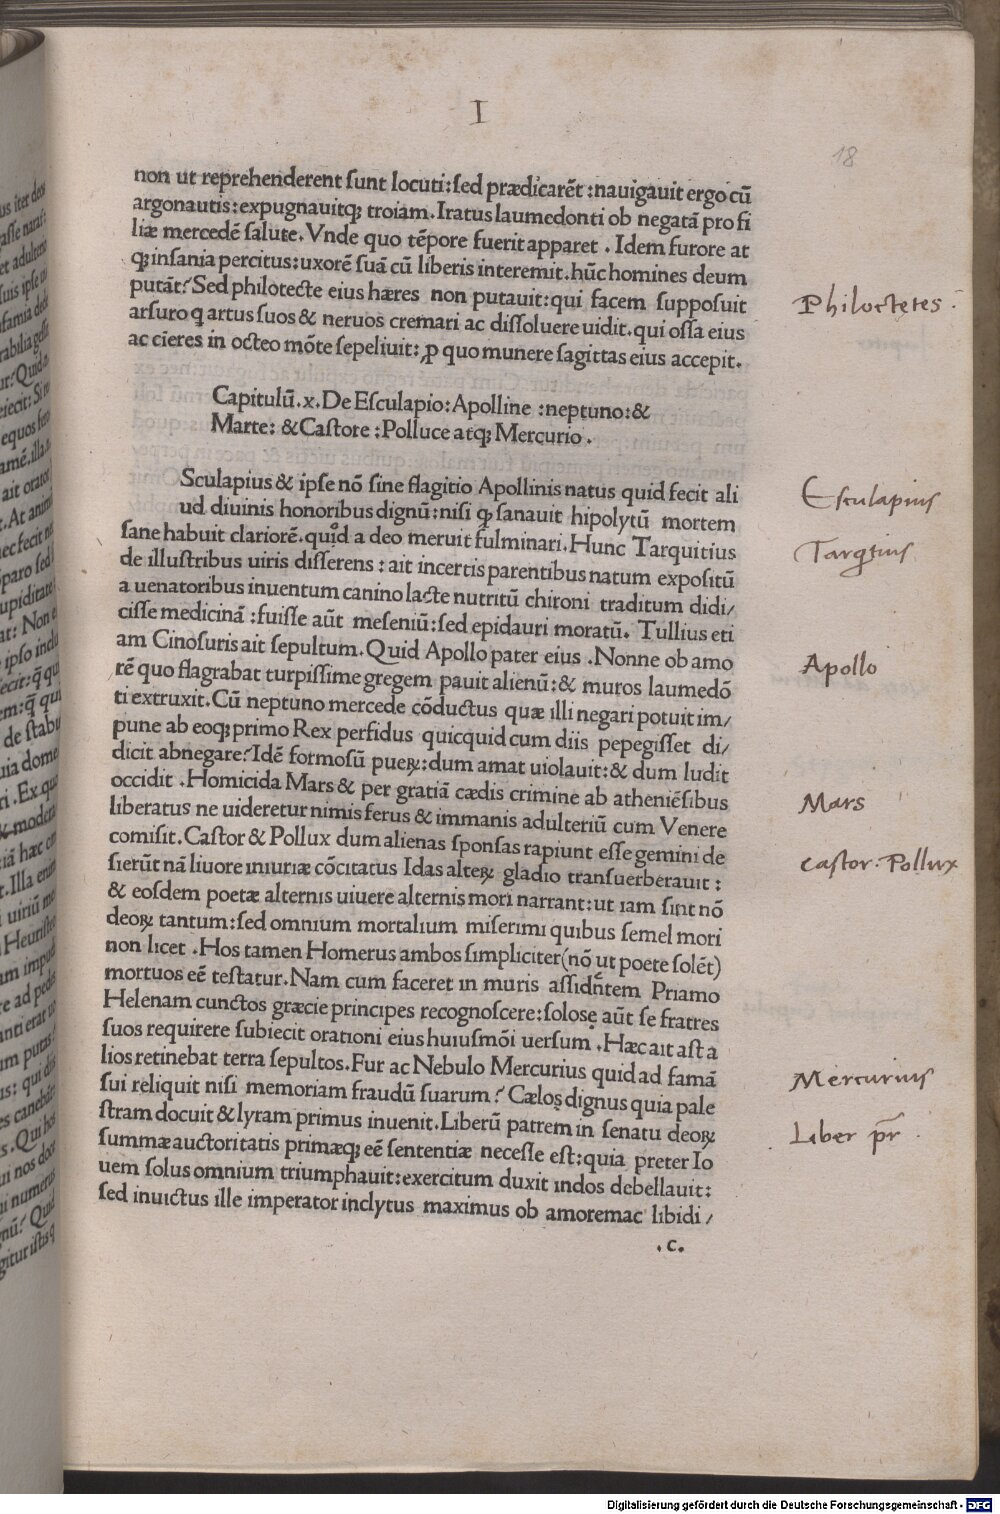 I
18
non ut reprehenderent ſunt locuti:ſed prædicarẽt :nauigauit ergo cũ
argonautis:expugnauitqꝫ troiam.Iratus laumedonti ob negatã pro fi
liæ mercedẽ ſalute.Vnde quo tẽpore fuerit apparet . Idem furore at
qꝫ inſania percitus:uxorẽ ſuã cũ liberis interemit.hũc homines deum
putãt? Sed philotecte eius hæres non putauit:qui facem ſuppoſuit
arſuro q artus ſuos & neruos cremari ac diſſoluere uidit.qui oſſa eius
ac cĩeres in octeo mõte ſepeliuit: ꝓ quo munere ſagittas eius accepit.
Philoctetes .
Capitulũ.x.De Eſculapio:Apolline :neptuno:&
Marte: &Caſtore :Polluce atqꝫ Mercurio .
Sculapius & ipſe nõ ſine flagitio Apollinis natus quid fecit ali
ud diuinis honoribus dignũ:niſi ꝙ ſanauit hipolytũ mortem
ſane habuit clariorẽ.quid a deo meruit fulminari.Hunc Tarquitius
de illuſtribus uiris diſſerens : ait incertis parentibus natum expoſitũ
a uenatoribus inuentum canino lacte nutritũ chironi traditum didi/
ciſſe medicinã :fuiſſe aũt meſeniũ:ſed epidauri moratũ. Tullius eti
am Cinoſuris ait ſepultum.Quid Apollo pater eius .Nonne ob amo
rẽ quo flagrabat turpiſſime gregem pauit alienũ:& muros laumedõ
ti extruxit.Cũ neptuno mercede cõductus quæ illi negari potuit im/
pune ab eoqꝫ primo Rex perfidus quicquid cum diis pepegiſſet di/
dicit abnegare? Idẽ formoſũ pueꝝ:dum amat uiolauit:& dum ludit
occidit .Homicida Mars & per gratiã cædis crimine ab atheniẽſibus
liberatus ne uideretur nimis ferus & immanis adulteriũ cum Venere
comiſit.Caſtor & Pollux dum alienas ſponſas rapiunt eſſe gemini de
ſierũt nã liuore iniuriæ cõcitatus Idas alteꝝ gladio tranſuerberauit :
& eoſdem poetæ alternis uiuere alternis mori narrant:ut iam ſint nõ
deoꝝ tantum:ſed omnium mortalium miſerimi quibus ſemel mori
non licet .Hos tamen Homerus ambos ſimpliciter(nõ ut poete ſolẽt)
mortuos eẽ teſtatur.Nam cum faceret in muris aſſidẽtem Priamo
Helenam cunctos græcie principes recognoſcere:ſolosę aũt ſe fratres
ſuos requirere ſubiecit orationi eius huiuſmõi uerſum .Hæc ait aſt a
lios retinebat terra ſepultos.Fur ac Nebulo Mercurius quid ad famã
ſui reliquit niſi memoriam fraudũ ſuarum? Cælos dignus quia pale
ſtram docuit & lyram primus inuenit.Liberũ patrem in ſenatu deoꝝ
ſummæ auctoritatis primæqꝫ eẽ ſententiæ neceſſe eſt:quia preter Io
uem ſolus omnium triumphauit:exercitum duxit indos debellauit:
ſed inuictus ille imperator inclytus maximus ob amoremac libidi/
.c.
Eſculapius
Tarqtius
Apollo
Mars
Caſtor . Pollux
Mercurius
Liber pr̃ .
Digitalisierung gefördert durch die Deutsche Forschungsgemeinschaft - DFG